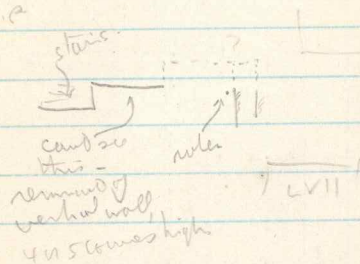 stairs.
?
can't see
this -
remnant of
vertical wall,
4 or 5 courses high
LVII